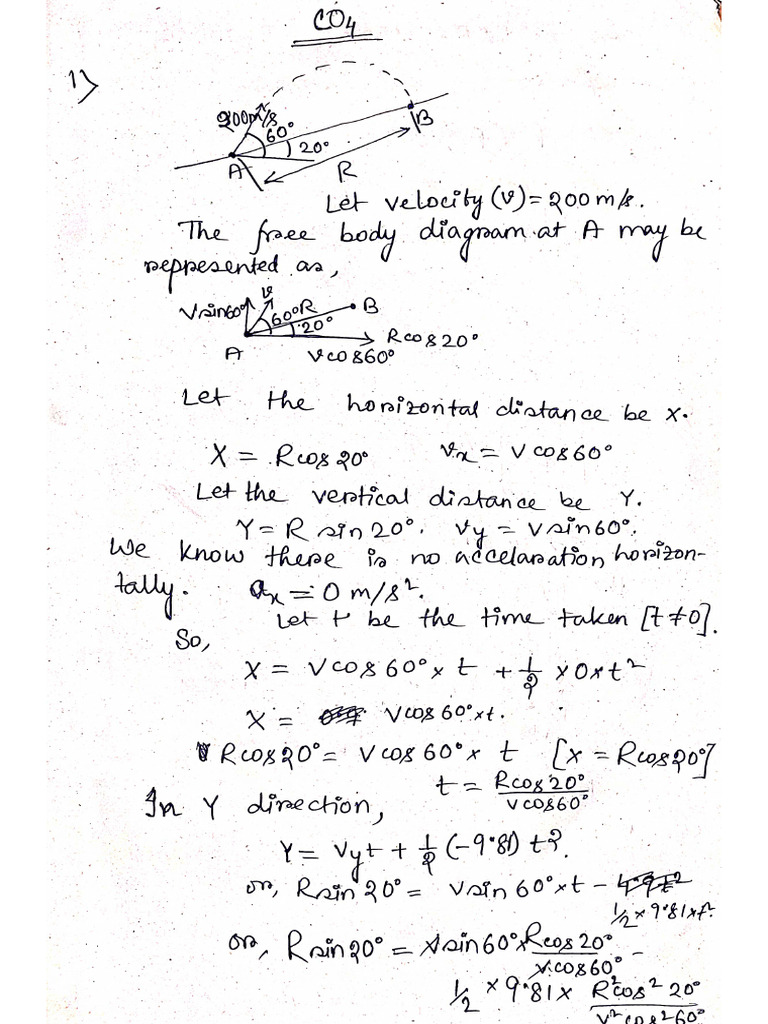 CO4
1)
200m/s
60°
20°
A
B
R
Let velocity (v) = 200 m/s.
The free body diagram at A may be
represented as,
Vsin60°
v
60°
R
20°
B
A
Rcos20°
vcos60°
Let the horizontal distance be x.
X = Rcos20° vx = Vcos60°
Let the vertical distance be Y.
Y = R sin 20°. Vy = Vsin60°.
We know there is no accelaration horizon-
tally. ax = 0 m/s².
Let t be the time taken [t≠0].
So,
X = Vcos60° x t + 1/2 x 0 x t²
X = Vcos60° x t.
Rcos20° = Vcos60° x t [X = Rcos20°]
t = Rcos20°/vcos60°
In Y direction,
Y = Vyt + 1/2 (-9.81) t².
or, Rsin20° = Vsin60° x t - 1/2 x 9.81 x t².
or, Rsin20° = Vsin60° x Rcos20°/v.cos60° -
1/2 x 9.81 x R²cos²20°/V²cos²60°